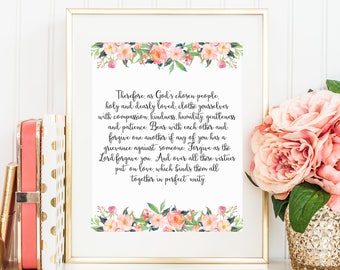 Therefore, as God's chosen people,
holy and dearly loved, clothe yourselves
with compassion, kindness, humility, gentleness
and patience. Bear with each other and
forgive one another if any of you has a
grievance against someone. Forgive as the
Lord forgave you. And over all these virtues
put on love, which binds them all
together in perfect unity.